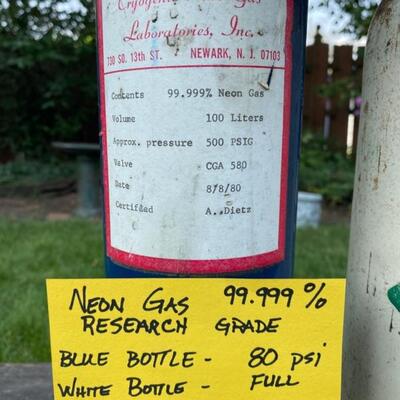 Gas
Laboratories, Inc.
730 SO. 13th ST. NEWARK, N. J. 07103
Contents 99.999% Neon Gas
Volume 100 Liters
Approx. pressure 500 PSIG
Valve CGA 580
Date 8/8/80
Certified A. Dietz
NEON GAS 99.999%
RESEARCH GRADE
BLUE BOTTLE - 80 psi
WHITE BOTTLE - FULL